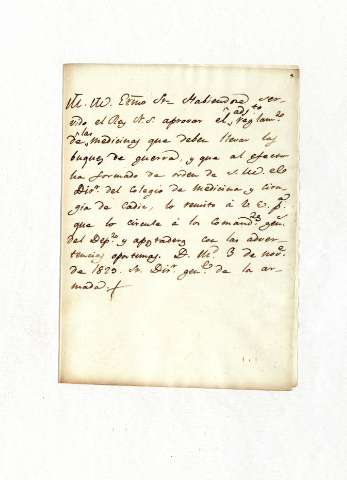 M. M. Exmo Sr. Habiendose ser-
vido el Rey N. S. aprovar el adto reglamto
de las medicinas que deben llevar los
buques de guerra, y que al efecto
ha formado de orden de S. M. el
Dior. del Colegio de Medicina y ciru-
gía de Cadiz, lo remito á V. E. pa.
que lo circule á los Comandtes genes.
del Depto y apostaderos con las adver-
tencias oportunas. D. Ms. 3 de novre.
de 1829. Sr. Dior. genl. de la ar-
mada.